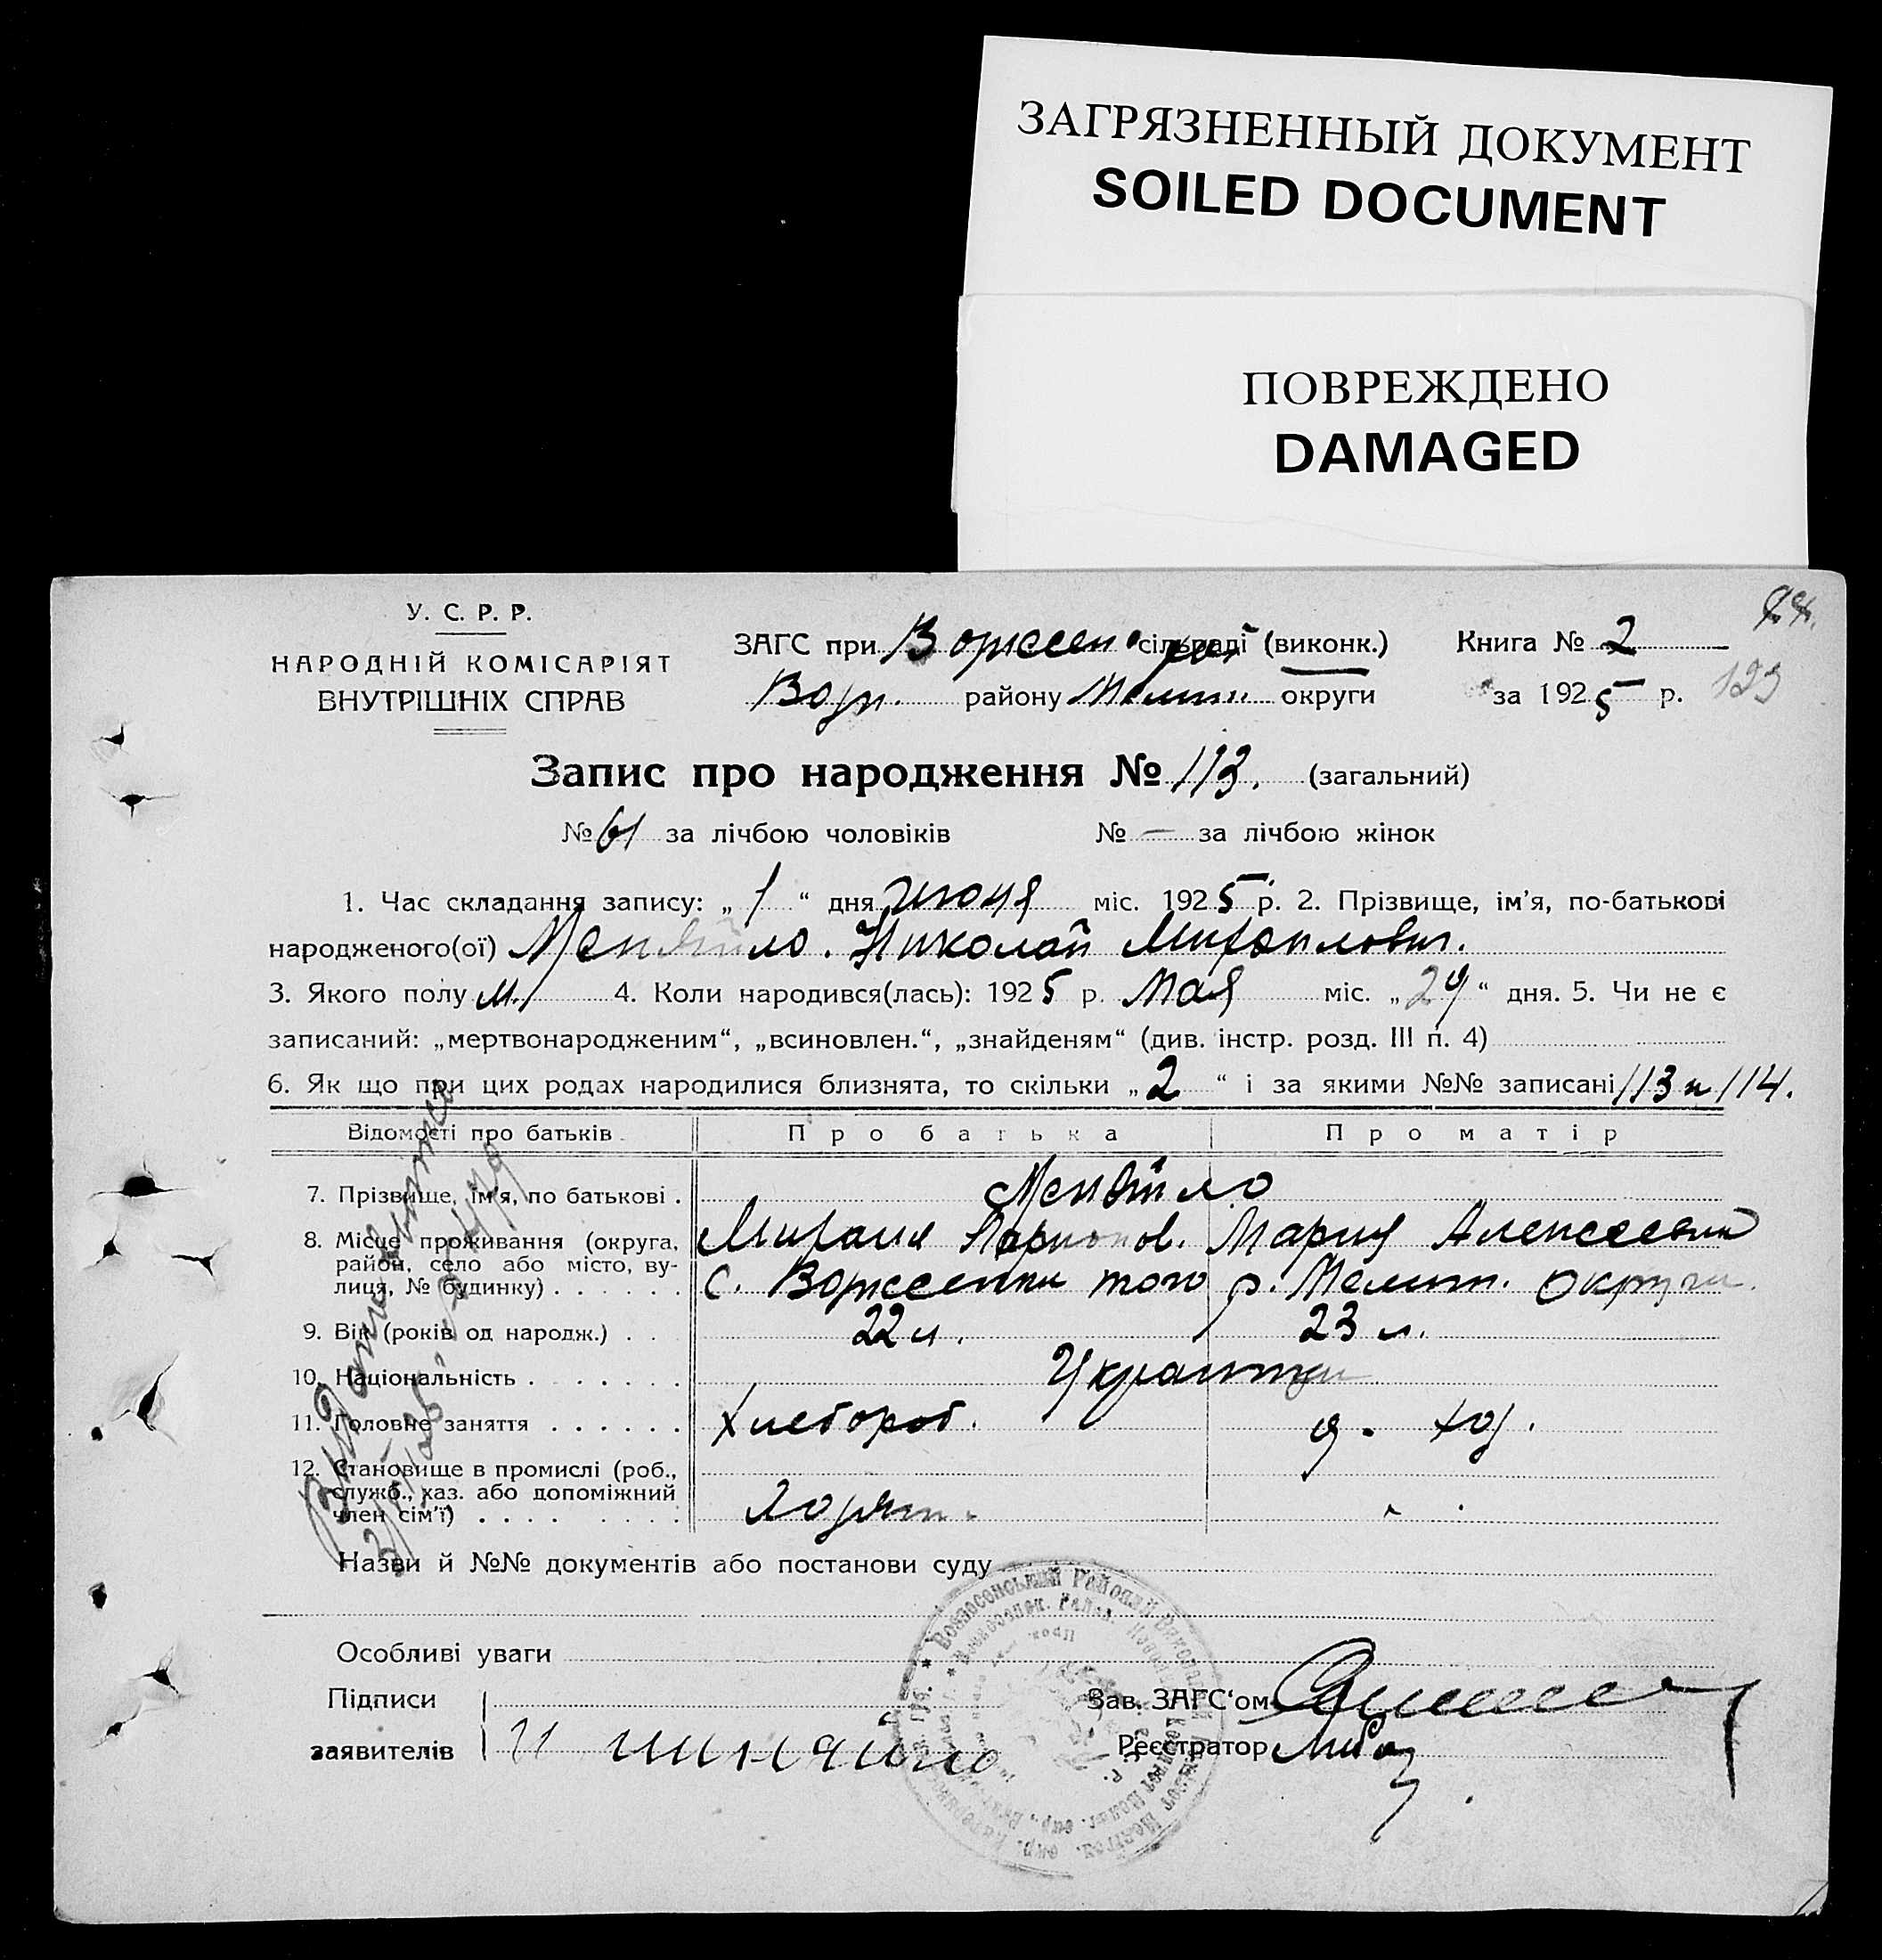 ЗАГРЯЗНЕННЫЙ ДОКУМЕНТ
SOILED DOCUMENT
ПОВРЕЖДЕНО
DAMAGED
У. С. Р. Р.
НАРОДНІЙ КОМІСАРІЯТ
ВНУТРІШНІХ СПРАВ
ЗАГС при сільраді (виконк.)
району Мелит. округи
Книга № 2
за 1925 р.
123
Запис про народження № 113. (загальний)
№ 61 за лічбою чоловіків № — за лічбою жінок
1. Час складання запису: „ 1 “ дня июня міс. 1925 р. 2. Прізвище, ім'я, по-батькові
народженого(ої) Меняйло. Николай Михаилович.
3. Якого полу м. 4. Коли народився(лась): 1925 р. Мая міс. „29“ дня. 5. Чи не є
записаний: „мертвонародженим“, „всиновлен.“, „знайденям“ (див. інстр. розд. III п. 4)
6. Як що при цих родах народилися близнята, то скільки „ 2 “ і за якими №№ записані 113 и 114.
Відомості про батьків Про батька Про матір
7. Прізвище, ім'я, по батькові . Меняйло
Михаил Ларионов. Мария Алексеевна
8. Місце проживання (округа,
район, село або місто, ву-
лиця, № будинку) . . . . . . с. того р. Мелит. округи
9. Вік (років од народж.) . . 22 л. 23 л.
10. Національність . . . . . . Украинцы
11. Головне заняття . . . . . . Хлебороб. д. хоз.
12. Становище в промислі (роб.,
служб., хаз. або допоміжний
член сім'ї) . . . . . . . .
Назви й №№ документів або постанови суду
Особливі уваги
Підписи
заявителів
Зав. ЗАГС'ом
Реєстратор